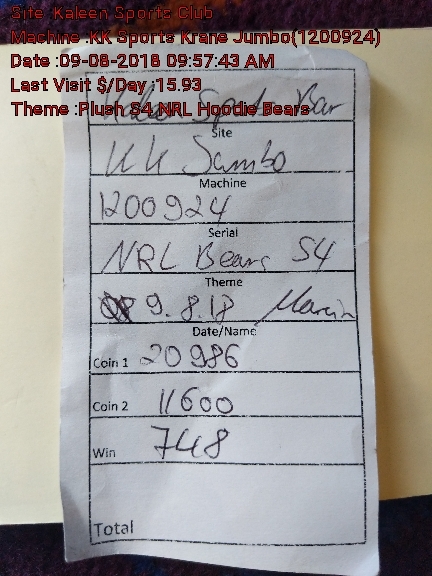 Site :Kaleen Sports Club
Machine :KK Sports Krane Jumbo(1200924)
Date :09-08-2018 09:57:43 AM
Last Visit $/Day :15.93
Theme :Plush S4 NRL Hoodie Bears
Bar
Site
KK Jambo
Machine
1200924
Serial
NRL Bears S4
Theme
9.8.18 Marcin
Date/Name
Coin 1 20986
Coin 2 11600
Win 748
Total